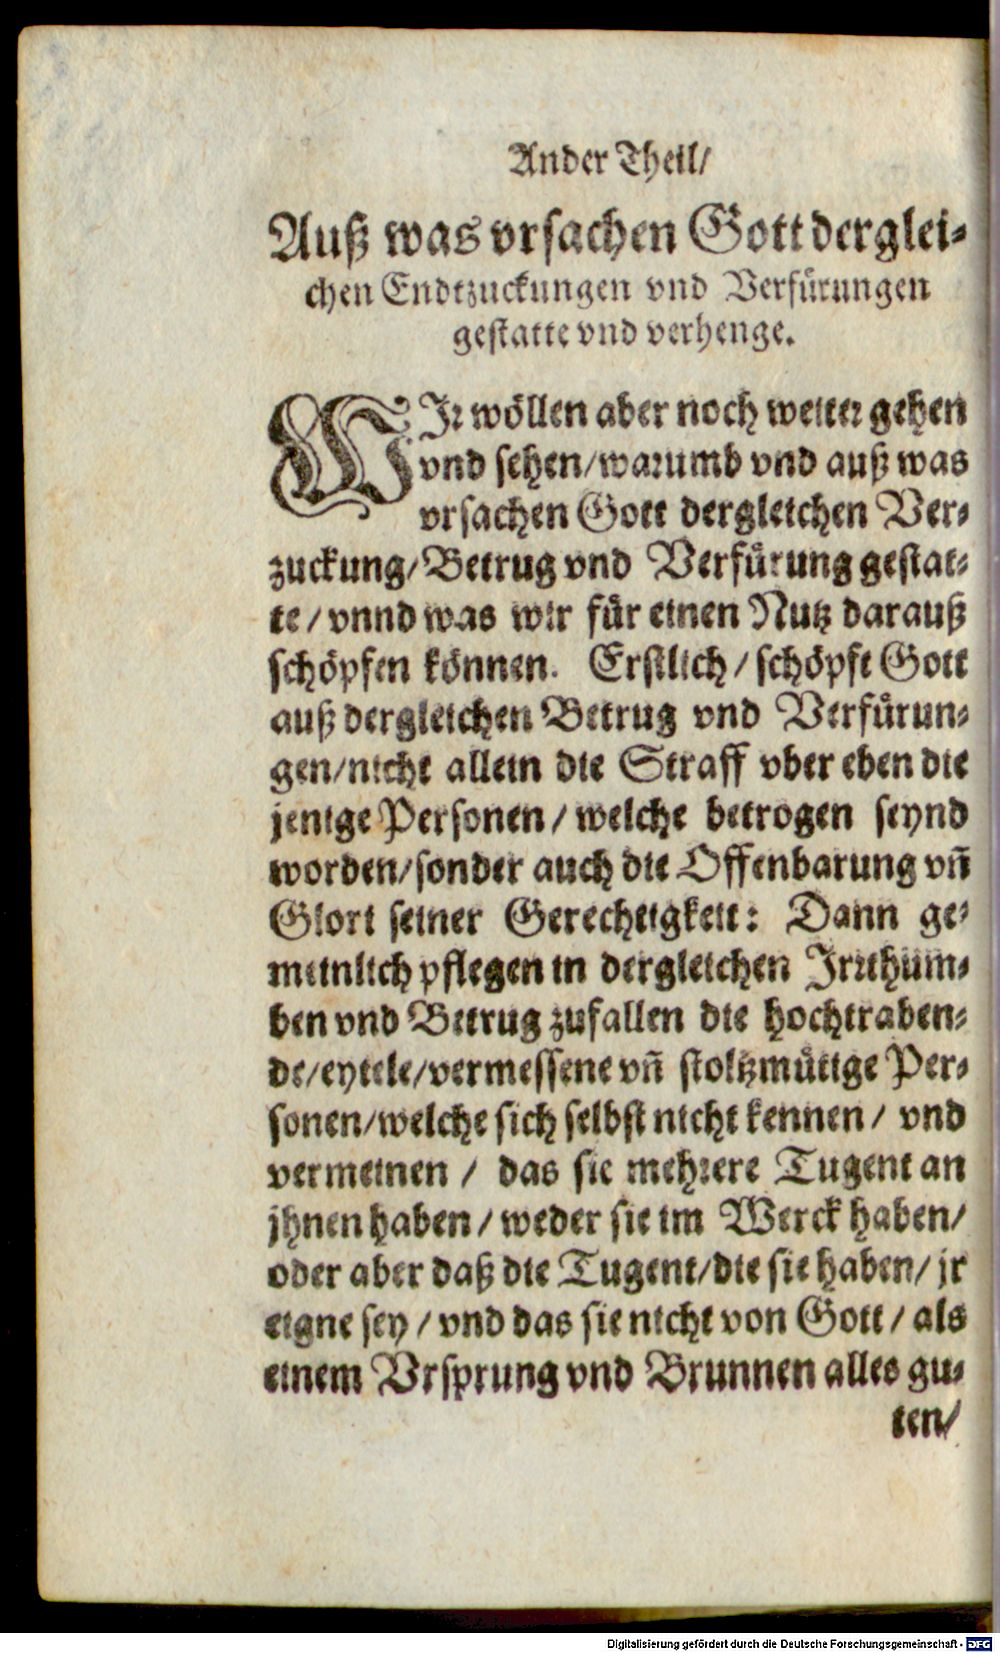 Ander Theil/
Auß was vrsachen Gott derglei-
chen Endtzuckungen vnd Verfürungen
gestatte vnd verhenge.
WIr wöllen aber noch weiter gehen
vnd sehen/warumb vnd auß was
vrsachen Gott dergleichen Ver-
zuckung/Betrug vnd Verfürung gestat-
te/vnnd was wir für einen Nutz darauß
schöpfen können. Erstlich/schöpft Gott
auß dergleichen Betrug vnd Verfürun-
gen/nicht allein die Straff vber eben die
jenige Personen/welche betrogen seynd
worden/sonder auch die Offenbarung vñ
Glori seiner Gerechtigkeit: Dann ge-
meinlich pflegen in dergleichen Irrthum-
ben vnd Betrug zufallen die hochtraben-
de/eytele/vermessene vñ stoltzmütige Per-
sonen/welche sich selbst nicht kennen/vnd
vermeinen/das sie mehrere Tugent an
jhnen haben/weder sie im Werck haben/
oder aber daß die Tugent/die sie haben/jr
eigne sey/vnd das sie nicht von Gott/als
einem Vrsprung vnd Brunnen alles gu-
ten/
Digitalisierung gefördert durch die Deutsche Forschungsgemeinschaft - DFG